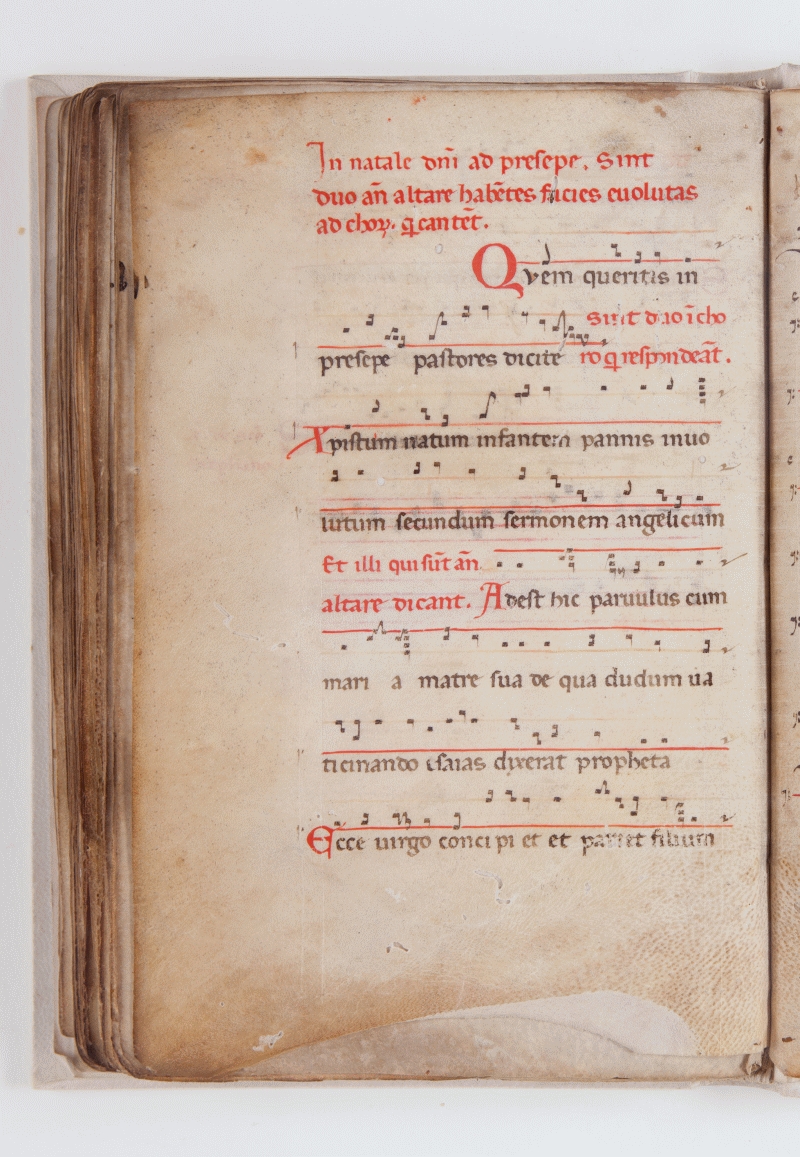 In natale dñi ad presepe. Sint
duo añ altare habẽtes facies euolutas
ad choꝝ. q̃ cantẽt.
Quem queritis in
sint duo ĩ cho
presepe pastores dicite ro q̃ respondeãt.
Xpistum natum infantem pannis inuo
lutum secundum sermonem angelicum
Et illi qui sũt añ
altare dicant. Adest hic paruulus cum
mari a matre sua de qua dudum ua
ticinando isaias dixerat propheta
Ecce uirgo concipi et et pariet filium